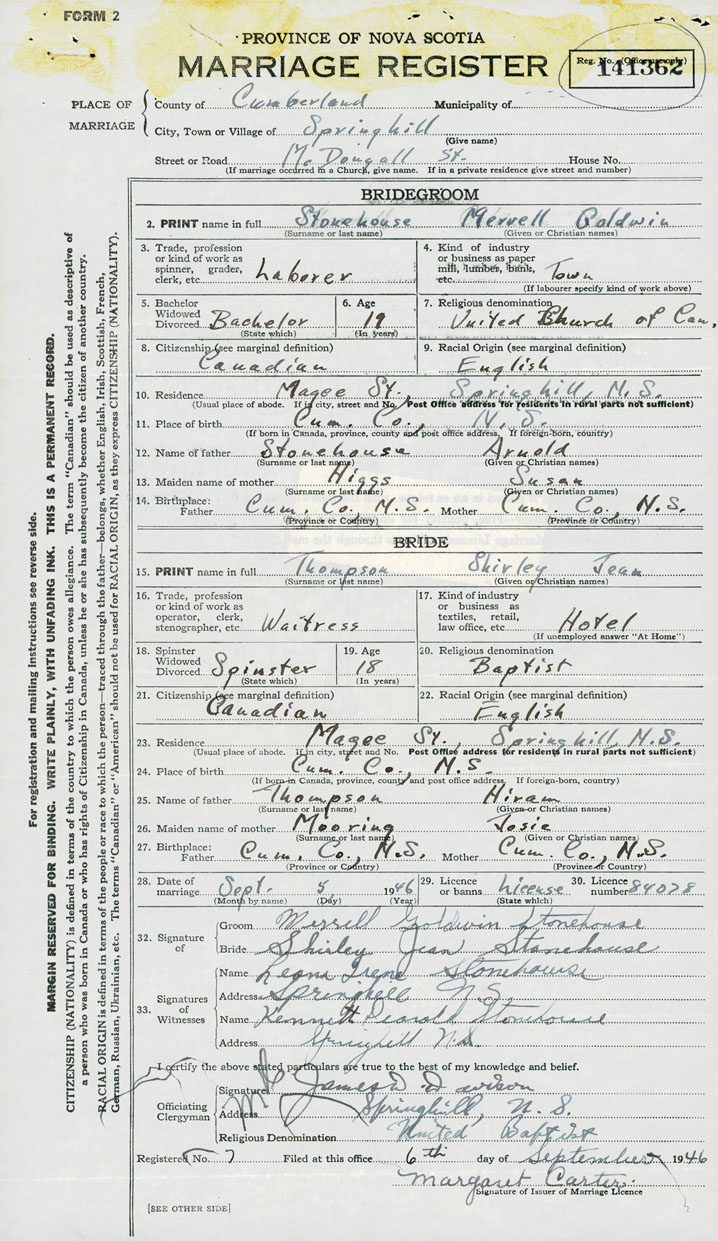 FORM 2
PROVINCE OF NOVA SCOTIA
MARRIAGE REGISTER
Reg. No. (Office use only)
141362
PLACE OF MARRIAGE
County of Cumberland Municipality of
City, Town or Village of Springhill
(Give name)
Street or Road McDougall St. House No.
(If marriage occurred in a Church, give name. If in a private residence give street and number)
BRIDEGROOM
2. PRINT name in full Stonehouse Mervell Goldwin
(Surname or last name) (Given or Christian names)
3. Trade, profession or kind of work as spinner, grader, clerk, etc. Laborer
4. Kind of industry or business as paper mill, lumber, bank, etc. Town
(If labourer specify kind of work above)
5. Bachelor Widowed Divorced Bachelor
(State which)
6. Age 19
(In years)
7. Religious denomination
United Church of Can.
8. Citizenship (see marginal definition)
Canadian
9. Racial Origin (see marginal definition)
English
10. Residence Magee St., Springhill, N.S.
(Usual place of abode. If in city, street and No. Post Office address for residents in rural parts not sufficient)
11. Place of birth Cum. Co., N.S.
(If born in Canada, province, county and post office address. If foreign-born, country)
12. Name of father Stonehouse Arnold
(Surname or last name) (Given or Christian names)
13. Maiden name of mother Higgs Susan
(Surname or last name) (Given or Christian names)
14. Birthplace: Father Cum. Co., N.S. Mother Cum. Co., N.S.
(Province or Country) (Province or Country)
BRIDE
15. PRINT name in full Thompson Shirley Jean
(Surname or last name) (Given or Christian names)
16. Trade, profession or kind of work as operator, clerk, stenographer, etc. Waitress
17. Kind of industry or business as textiles, retail, law office, etc. Hotel
(If unemployed answer "At Home")
18. Spinster Widowed Divorced Spinster
(State which)
19. Age 18
(In years)
20. Religious denomination
Baptist
21. Citizenship (see marginal definition)
Canadian
22. Racial Origin (see marginal definition)
English
23. Residence Magee St., Springhill, N.S.
(Usual place of abode. If in city, street and No. Post Office address for residents in rural parts not sufficient)
24. Place of birth Cum. Co., N.S.
(If born in Canada, province, county and post office address. If foreign-born, country)
25. Name of father Thompson Hiram
(Surname or last name) (Given or Christian names)
26. Maiden name of mother Mooring Josie
(Surname or last name) (Given or Christian names)
27. Birthplace: Father Cum. Co., N.S. Mother Cum. Co., N.S.
(Province or Country) (Province or Country)
28. Date of marriage Sept. 5 1946
(Month by name) (Day) (Year)
29. Licence or banns License
(State which)
30. Licence number 84078
32. Signature of
Groom Merrill Goldwin Stonehouse
Bride Shirley Jean Stonehouse
33. Signatures of Witnesses
Name Leona Irene Stonehouse
Address Springhill N.S.
Name Kenneth Stonehouse
Address Springhill N.S.
I certify the above stated particulars are true to the best of my knowledge and belief.
Officiating Clergyman
Signature James D. Davison
Address Springhill, N.S.
Religious Denomination United Baptist
Registered No. 7 Filed at this office 6th day of September 1946
Margaret Carter
Signature of Issuer of Marriage Licence
[SEE OTHER SIDE]
For registration and mailing instructions see reverse side.
MARGIN RESERVED FOR BINDING. WRITE PLAINLY, WITH UNFADING INK. THIS IS A PERMANENT RECORD.
CITIZENSHIP (NATIONALITY) is defined in terms of the country to which the person owes allegiance. The term "Canadian" should be used as descriptive of
a person who was born in Canada or who has rights of Citizenship in Canada, unless he or she has subsequently become the citizen of another country.
RACIAL ORIGIN is defined in terms of the people or race to which the person—traced through the father—belongs, whether English, Irish, Scottish, French,
German, Russian, Ukrainian, etc. The terms "Canadian" or "American" should not be used for RACIAL ORIGIN, as they express CITIZENSHIP (NATIONALITY).